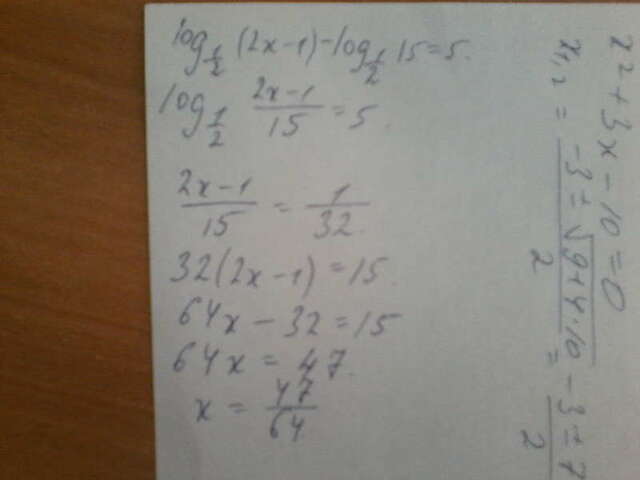 log_{1/2} (2x-1) - log_{1/2} 15 = 5.
log_{1/2} (2x-1)/15 = 5.
(2x-1)/15 = 1/32.
32(2x-1) = 15.
64x - 32 = 15
64x = 47.
x = 47/64
x² + 3x - 10 = 0
x_{1,2} = (-3 ± √(9+4·10))/2 = (-3 ± 7)/2